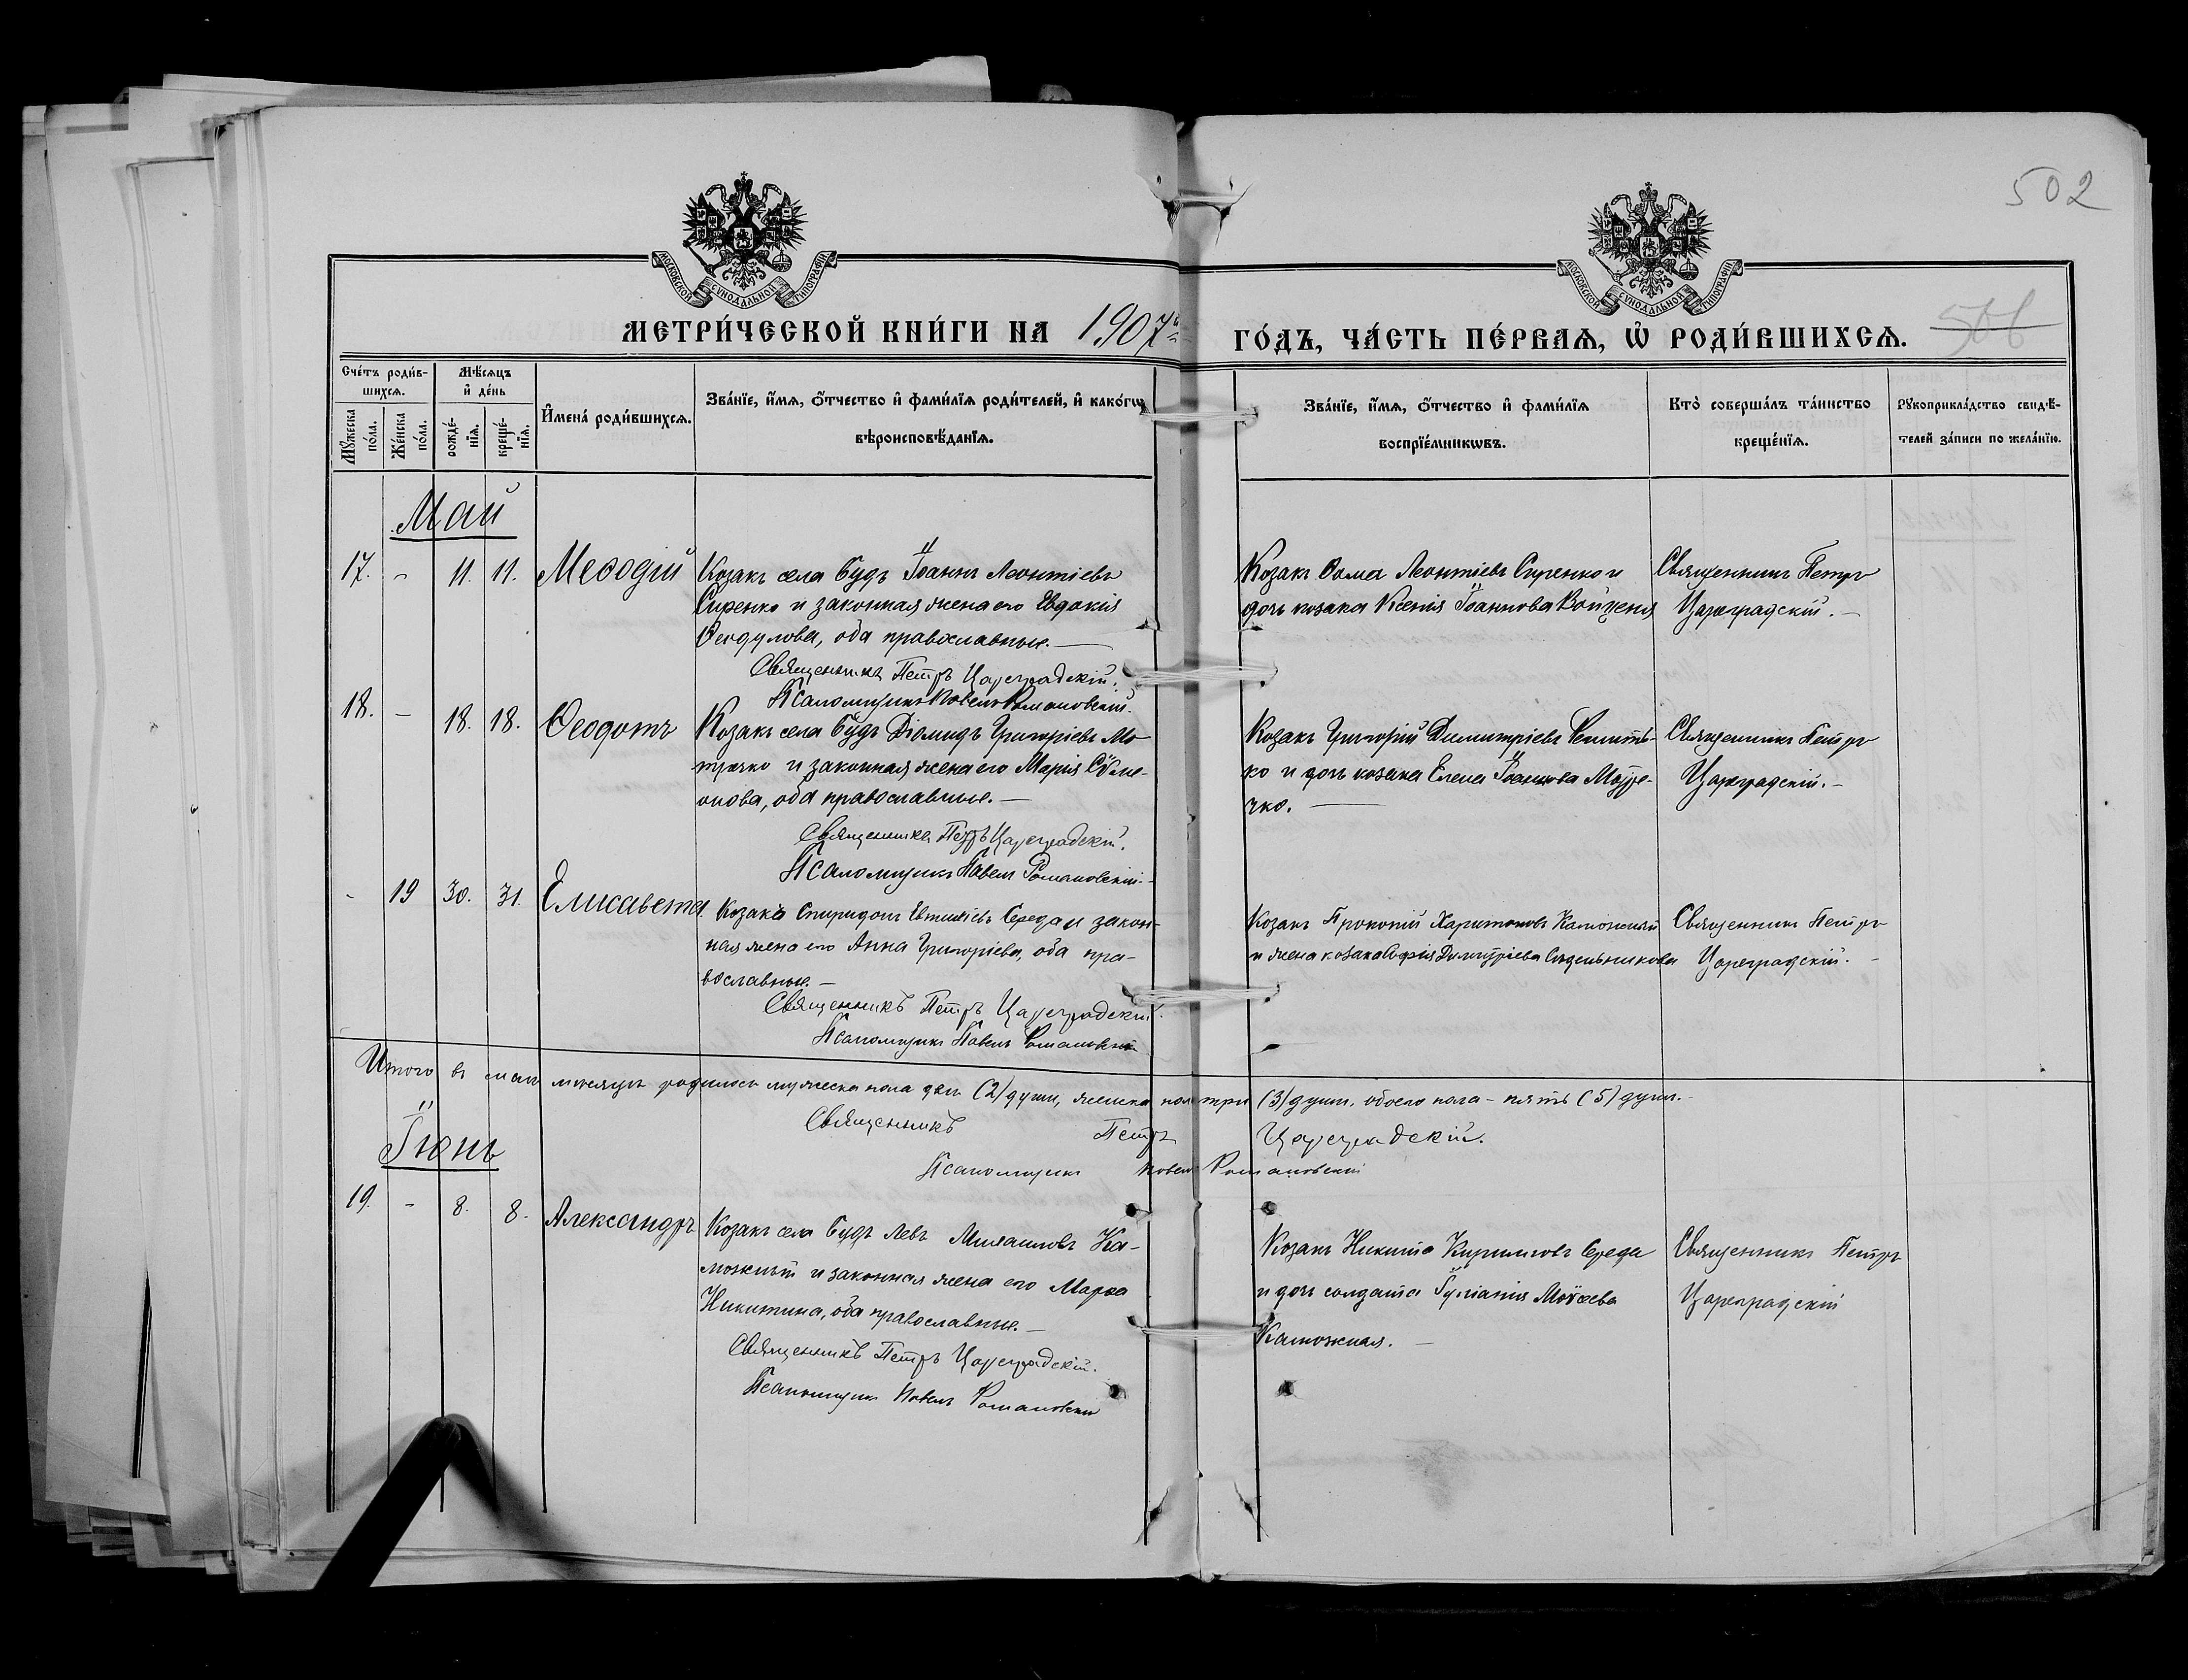 502
МОСКОВСКОЙ СѴНОДАЛЬНОЙ ТИПОГРАФІИ
МОСКОВСКОЙ СѴНОДАЛЬНОЙ ТИПОГРАФІИ
МЕТРИ́ЧЕСКОЙ КНИ́ГИ НА 1907й ГО́ДЪ, ЧА́СТЬ ПЕ́РВАѦ, Ѽ РОДИ́ВШИХСѦ.
Сче́тъ роди́в-
шихсѧ.
Мѣ́сѧцъ
и҆ де́нь
Мꙋ́жеска по́ла.
Же́нска по́ла.
рожде́-нїѧ.
креще́-нїѧ.
И҆мена̀ роди́вшихсѧ.
Зва́нїе, и҆́мѧ, ѻ҆́тчество и҆ фами́лїѧ роди́телей, и҆ како́гѡ
вѣроисповѣ́данїѧ.
Зва́нїе, и҆́мѧ, ѻ҆́тчество и҆ фами́лїѧ
воспрїе́мникѡвъ.
Кто̀ соверша́лъ та́инство
креще́нїѧ.
Рꙋкоприкла́дство свидѣ́-
телей за́писи по жела́нїю.
Май
17. - 11. 11. Меѳодій
Козакъ села Будъ Іоаннъ Леонтіевъ
Сиренко и законная жена его Евдокія
Ѳеодулова, оба православные.
Священникъ Петръ Цареградскій.
Псаломщикъ Павелъ Романовскій.
Козакъ Ѳома Леонтіевъ Сиренко и
дочь козака Ксенія Іоаннова
Священникъ Петръ
Цареградскій.
18. - 18. 18. Ѳеодотъ
Козакъ села Будъ Діомидъ Григоріевъ Мо-
тречко и законная жена его Марія Сѵме-
онова, оба православные.
Священникъ Петръ Цареградскій.
Псаломщикъ Павелъ Романовскій.
Козакъ Григорій Димитріевъ
ко и дочь козака Елена Іоаннова Мотре-
чко.
Священникъ Петръ
Цареградскій.
- 19 30. 31. Елисавета
Козакъ Спиридонъ Евтихіевъ Середа и закон-
ная жена его Анна Григоріева, оба пра-
вославные.
Священникъ Петръ Цареградскій.
Псаломщикъ Павелъ Романовскій
Козакъ Прокопій Харитоновъ Каможный
и жена козака Софія Димитріева Сидельникова
Священникъ Петръ
Цареградскій.
Итого въ маѣ мѣсяцѣ родилось мужеска пола двѣ (2) души, женска пола три (3) души, обоего пола - пять (5) душъ.
Священникъ Петръ Цареградскій.
Псаломщикъ Павелъ Романовскій
Іюнь
19. - 8. 8. Александръ
Козакъ села Будъ Левъ Михаиловъ Ка-
можный и законная жена его Марѳа
Никитина, оба православные.
Священникъ Петръ Цареградскій.
Псаломщикъ Павелъ Романовскій
Козакъ Никита Кирилловъ Середа
и дочь солдата Іуліанія Моѵсеева
Каможная.
Священникъ Петръ
Цареградскій